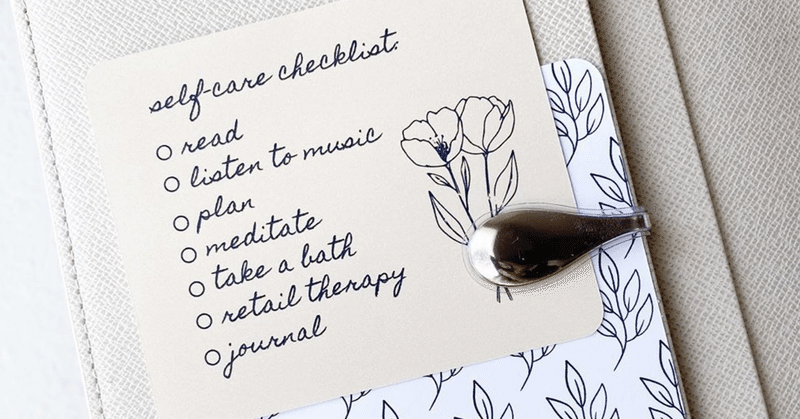 self-care checklist:
read
listen to music
plan
meditate
take a bath
retail therapy
journal